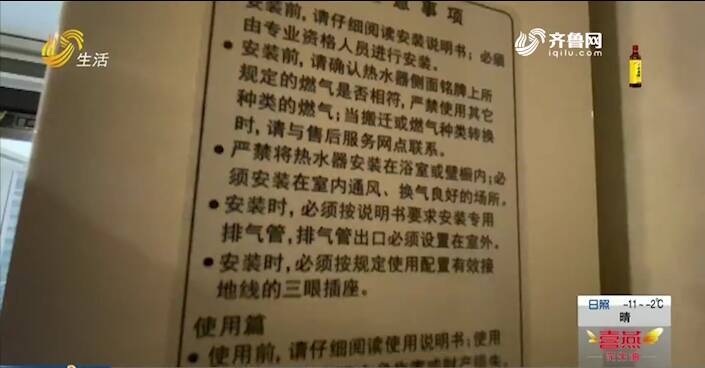 意事项
安装前,请仔细阅读安装说明书;必须
由专业资格人员进行安装。
• 安装前,请确认热水器侧面铭牌上所
规定的燃气是否相符,严禁使用其它
种类的燃气;当搬迁或燃气种类转换
时,请与售后服务网点联系。
• 严禁将热水器安装在浴室或壁橱内;必
须安装在室内通风、换气良好的场所。
• 安装时,必须按说明书要求安装专用
排气管,排气管出口必须设置在室外。
• 安装时,必须按规定使用配置有效接
地线的三眼插座。
使用篇
• 使用前,请仔细阅读使用说明书;使用
生活
齐鲁网
iqilu.com
日照 -11~-2℃
晴
喜燕